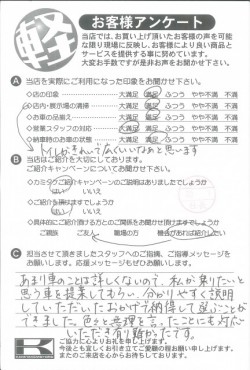 軽
お客様アンケート
当店では、お買い上げ頂いたお客様の声を可能
な限り現場に反映し、お客様により良い商品と
サービスを提供する事に努めています。
大変お手数ですが是非お声をお聞かせ下さい。
A 当店を実際にご利用になった印象をお聞かせ下さい。
◇店の印象 大満足 満足 ふつう やや不満 不満
◇店内・展示場の清掃 大満足 満足 ふつう やや不満 不満
◇お車の品揃え 大満足 満足 ふつう やや不満 不満
◇営業スタッフの対応 大満足 満足 ふつう やや不満 不満
◇納車時のお車の状態 大満足 満足 ふつう やや不満 不満
きれいで広くていいなぁと思います
B 当店はご紹介を大切にしております。
ご紹介キャンペーンについてお聞かせ下さい。
◇カミタケご紹介キャンペーンのご説明はありましたでしょうか
はい いいえ
◇ご紹介を頂けますでしょうか
はい いいえ
◇具体的にご紹介頂ける方との関係をお聞かせ頂けますでしょうか
ご親戚 ご友人 職場の方 機会があれば紹介したい
C 担当させて頂きましたスタッフへのご指摘、ご指導メッセージを
お願いします。応援メッセージもぜひお願いします。
あまり車のことは詳しくないので、私が乗りたいと
思う車を提案してもらい、分かりやすく説明
していただいたおかげで納得して選ぶことが
できました。色々と無理を言ったことにも対応
いただき有り難かったです。
ご協力に心よりお礼を申し上げます。
今後とも宜しくお引き立てご愛顧の程お願い申し上げます。
またのご来店を心からお待ちしております。
K